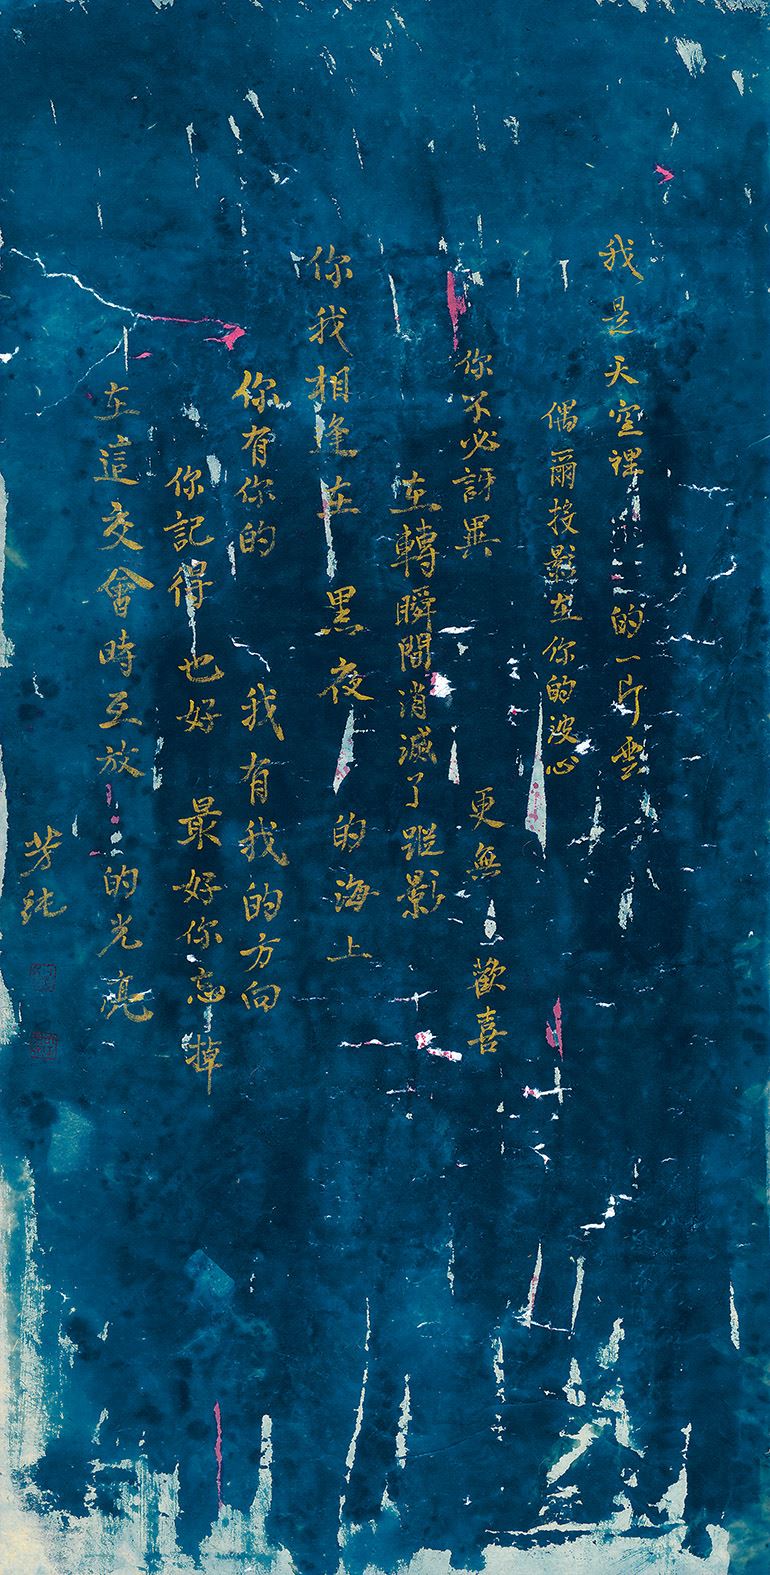 我是天空裡的一片雲
偶爾投影在你的波心
你不必訝異
更無歡喜
在轉瞬間消滅了蹤影
你我相逢在黑夜的海上
你有你的 我有我的方向
你記得也好 最好你忘掉
在這交會時互放的光亮
芳純